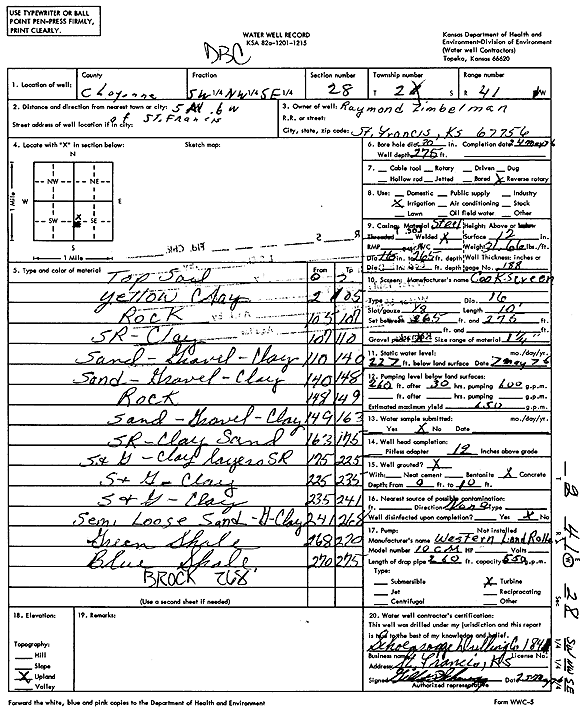 USE TYPEWRITER OR BALL
POINT PEN-PRESS FIRMLY,
PRINT CLEARLY.
WATER WELL RECORD
KSA 82a-1201-1215
Kansas Department of Health and
Environment-Division of Environment
(Water well Contractors)
Topeka, Kansas 66620
DBC
1. Location of well:
County
Cheyenne
Fraction
SW 1/4 NW 1/4 SE 1/4
Section number
28
Township number
T 2
Range number
R 41 W
2. Distance and direction from nearest town or city: 5 N .6 W
of St. Francis
Street address of well location if in city:
3. Owner of well: Raymond Zimbelman
R.R. or street:
City, state, zip code: St. Francis, KS 67756
4. Locate with "X" in section below:
Sketch map:
N
NW NE
W E
SW SE
S
1 Mile
1 Mile
X
5. Type and color of material
From To
Top Soil 0 2
Yellow Clay 2 105
Rock 105 107
SR-Clay 107 110
Sand-Gravel-Clay 110 140
Sand-Gravel-Clay 140 148
Rock 148 149
Sand-Gravel-Clay 149 163
SR-Clay Sand 163 175
S+G-Clay layers SR 175 225
S+G-Clay 225 235
S+G-Clay 235 241
Semi Loose Sand-G-Clay 241 268
Green Shale 268 270
Blue Shale 270 275
BROCK 268'
(Use a second sheet if needed)
6. Bore hole dia. 30 in. Completion date 24 May 76
Well depth 275 ft.
7. Cable tool Rotary Driven Dug
Hollow rod Jetted Bored X Reverse rotary
8. Use: Domestic Public supply Industry
X Irrigation Air conditioning Stock
Lawn Oil field water Other
9. Casing: Material Steel Height: Above or below
Threaded Welded X Surface 12 in.
RMP PVC Weight 21.66 lbs./ft.
Dia 16 in. to 265 ft. depth Wall Thickness: inches or
Dia in. to ft. depth gage No. .188
10. Screen: Manufacturer's name Cook Screen
Type Dia. 16
Slot/gauze 1/8 Length 10'
Set between 265 ft. and 275 ft.
ft. and ft.
Gravel pack? Size range of material 1/4"
11. Static water level: mo./day/yr.
227 ft. below land surface Date 7 May 76
12. Pumping level below land surfaces:
260 ft. after 30 hrs. pumping 600 g.p.m.
ft. after hrs. pumping g.p.m.
Estimated maximum yield 650 g.p.m.
13. Water sample submitted: mo./day/yr.
Yes X No Date
14. Well head completion:
Pitless adapter 12 Inches above grade
15. Well grouted? X
With: Neat cement Bentonite X Concrete
Depth: From 0 ft. to 10 ft.
16. Nearest source of possible contamination:
ft. Direction None Type
Well disinfected upon completion? Yes X No
17. Pump: Not installed
Manufacturer's name Western Land Roller
Model number 10CM HP Volts
Length of drop pipe 260 ft. capacity 550 g.p.m.
Type:
Submersible X Turbine
Jet Reciprocating
Centrifugal Other
18. Elevation:
Topography:
Hill
Slope
X Upland
Valley
19. Remarks:
20. Water well contractor's certification:
This well was drilled under my jurisdiction and this report
is true to the best of my knowledge and belief.
Drilling Co 184
Business name License No.
Address St. Francis, KS
Signed Date
Authorized representative
T R Sec 1/4 1/4 1/4
2 41 W 28 SW NW SE
Forward the white, blue and pink copies to the Department of Health and Environment
Form WWC-5